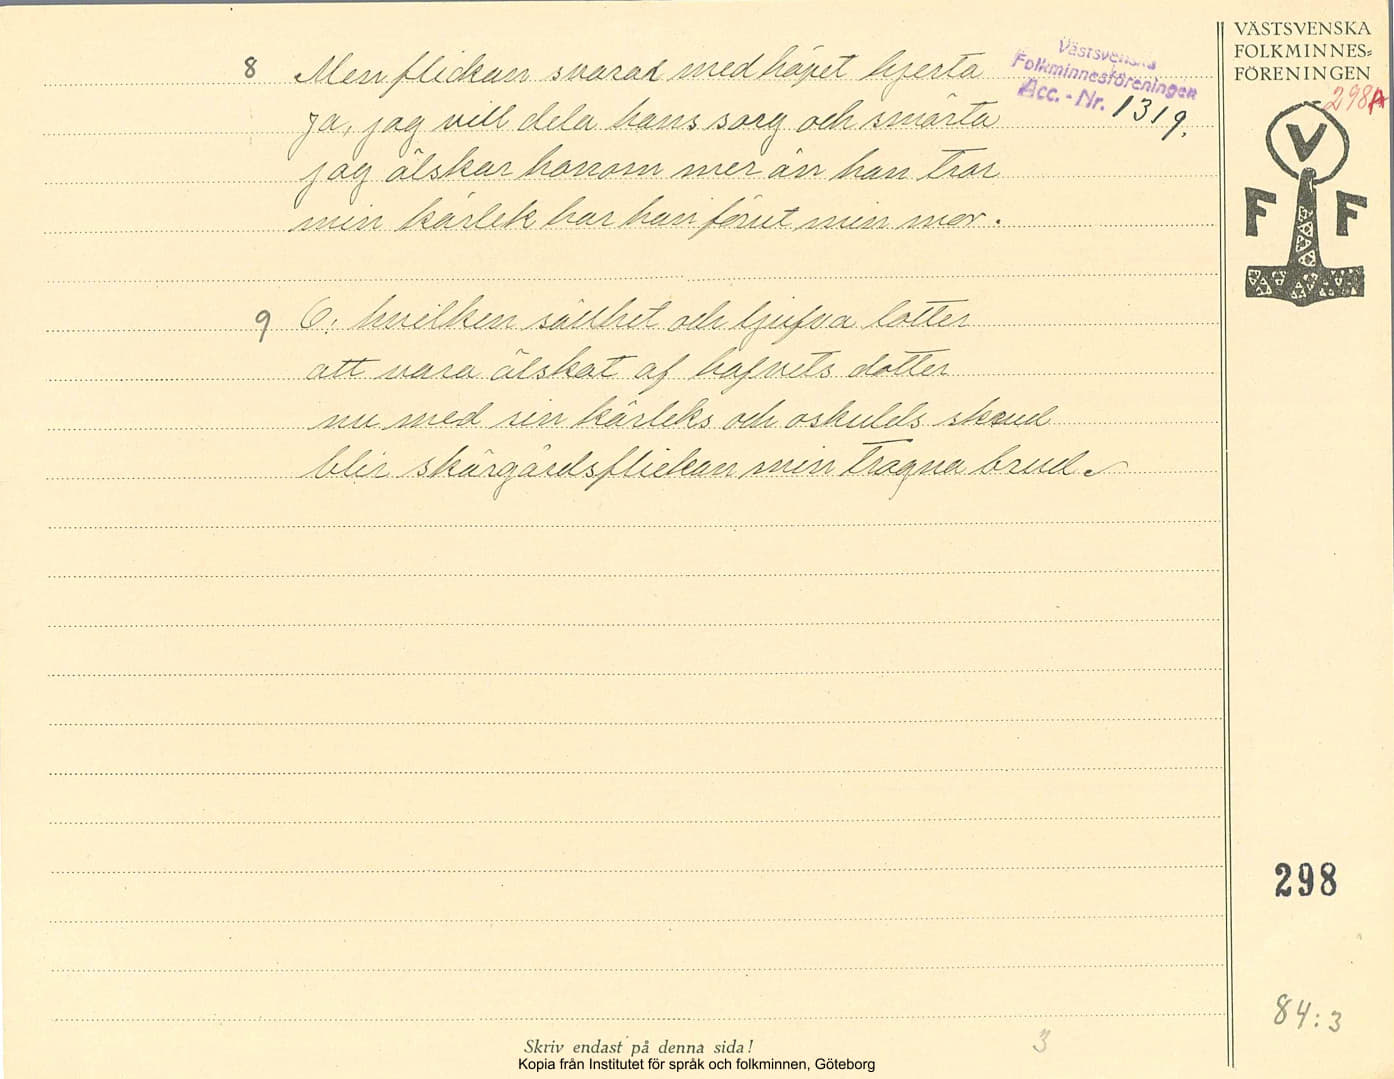 8 Men flickan svarar med häpet hjerta
Ja, jag vill dela hans sorg och smärta
jag älskar honom mer än han tror
min kärlek har han förut min mor.
9 O, hvilken sällhet och ljufva lotter
att vara älskat af hafvets dotter
nu med sin kärleks och oskulds skrud
blir skärgårdsflickan min trogna brud.
Västsvenska
Folkminnesföreningen
Acc. - Nr. 1319.
VÄSTSVENSKA
FOLKMINNES=
FÖRENINGEN
298A
V
F F
298
84:3
3
Skriv endast på denna sida!
Kopia från Institutet för språk och folkminnen, Göteborg